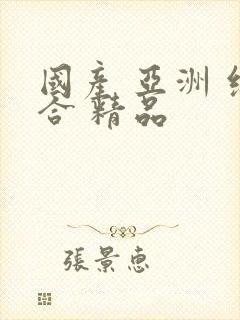 國產 亞洲 綜
合 精品
張景惠